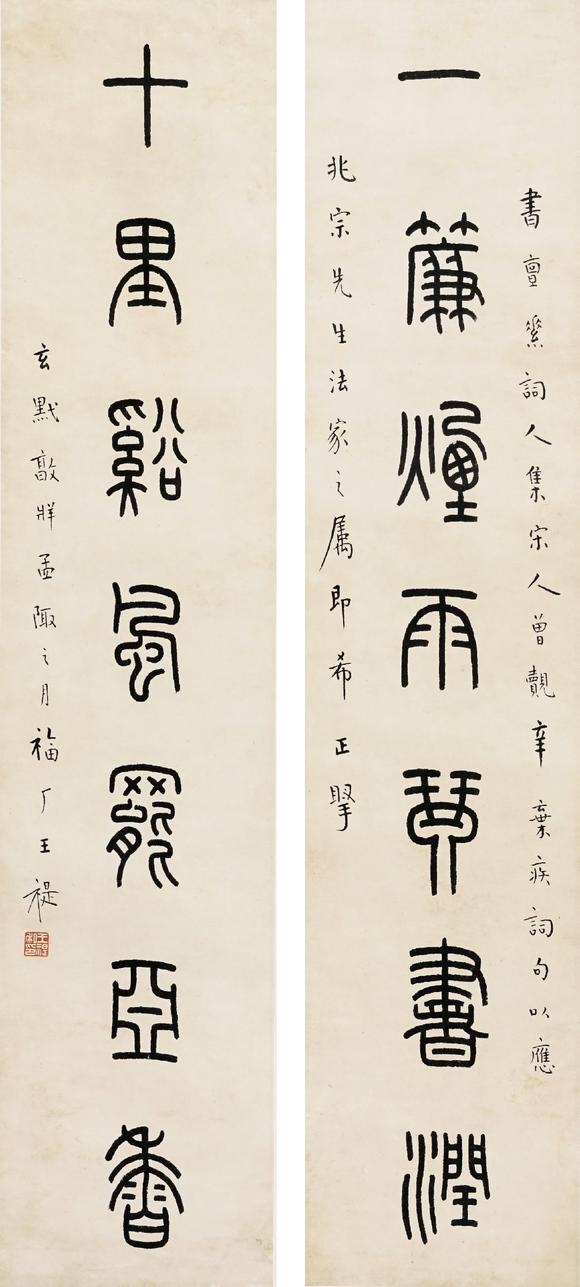 一簾煙雨琴書潤
書亶素詞人集宋人曾覿辛棄疾詞句以應
兆宗先生法家之属即希正掔
十里谿風罷亞香
玄黓敦牂孟陬之月福厂王禔